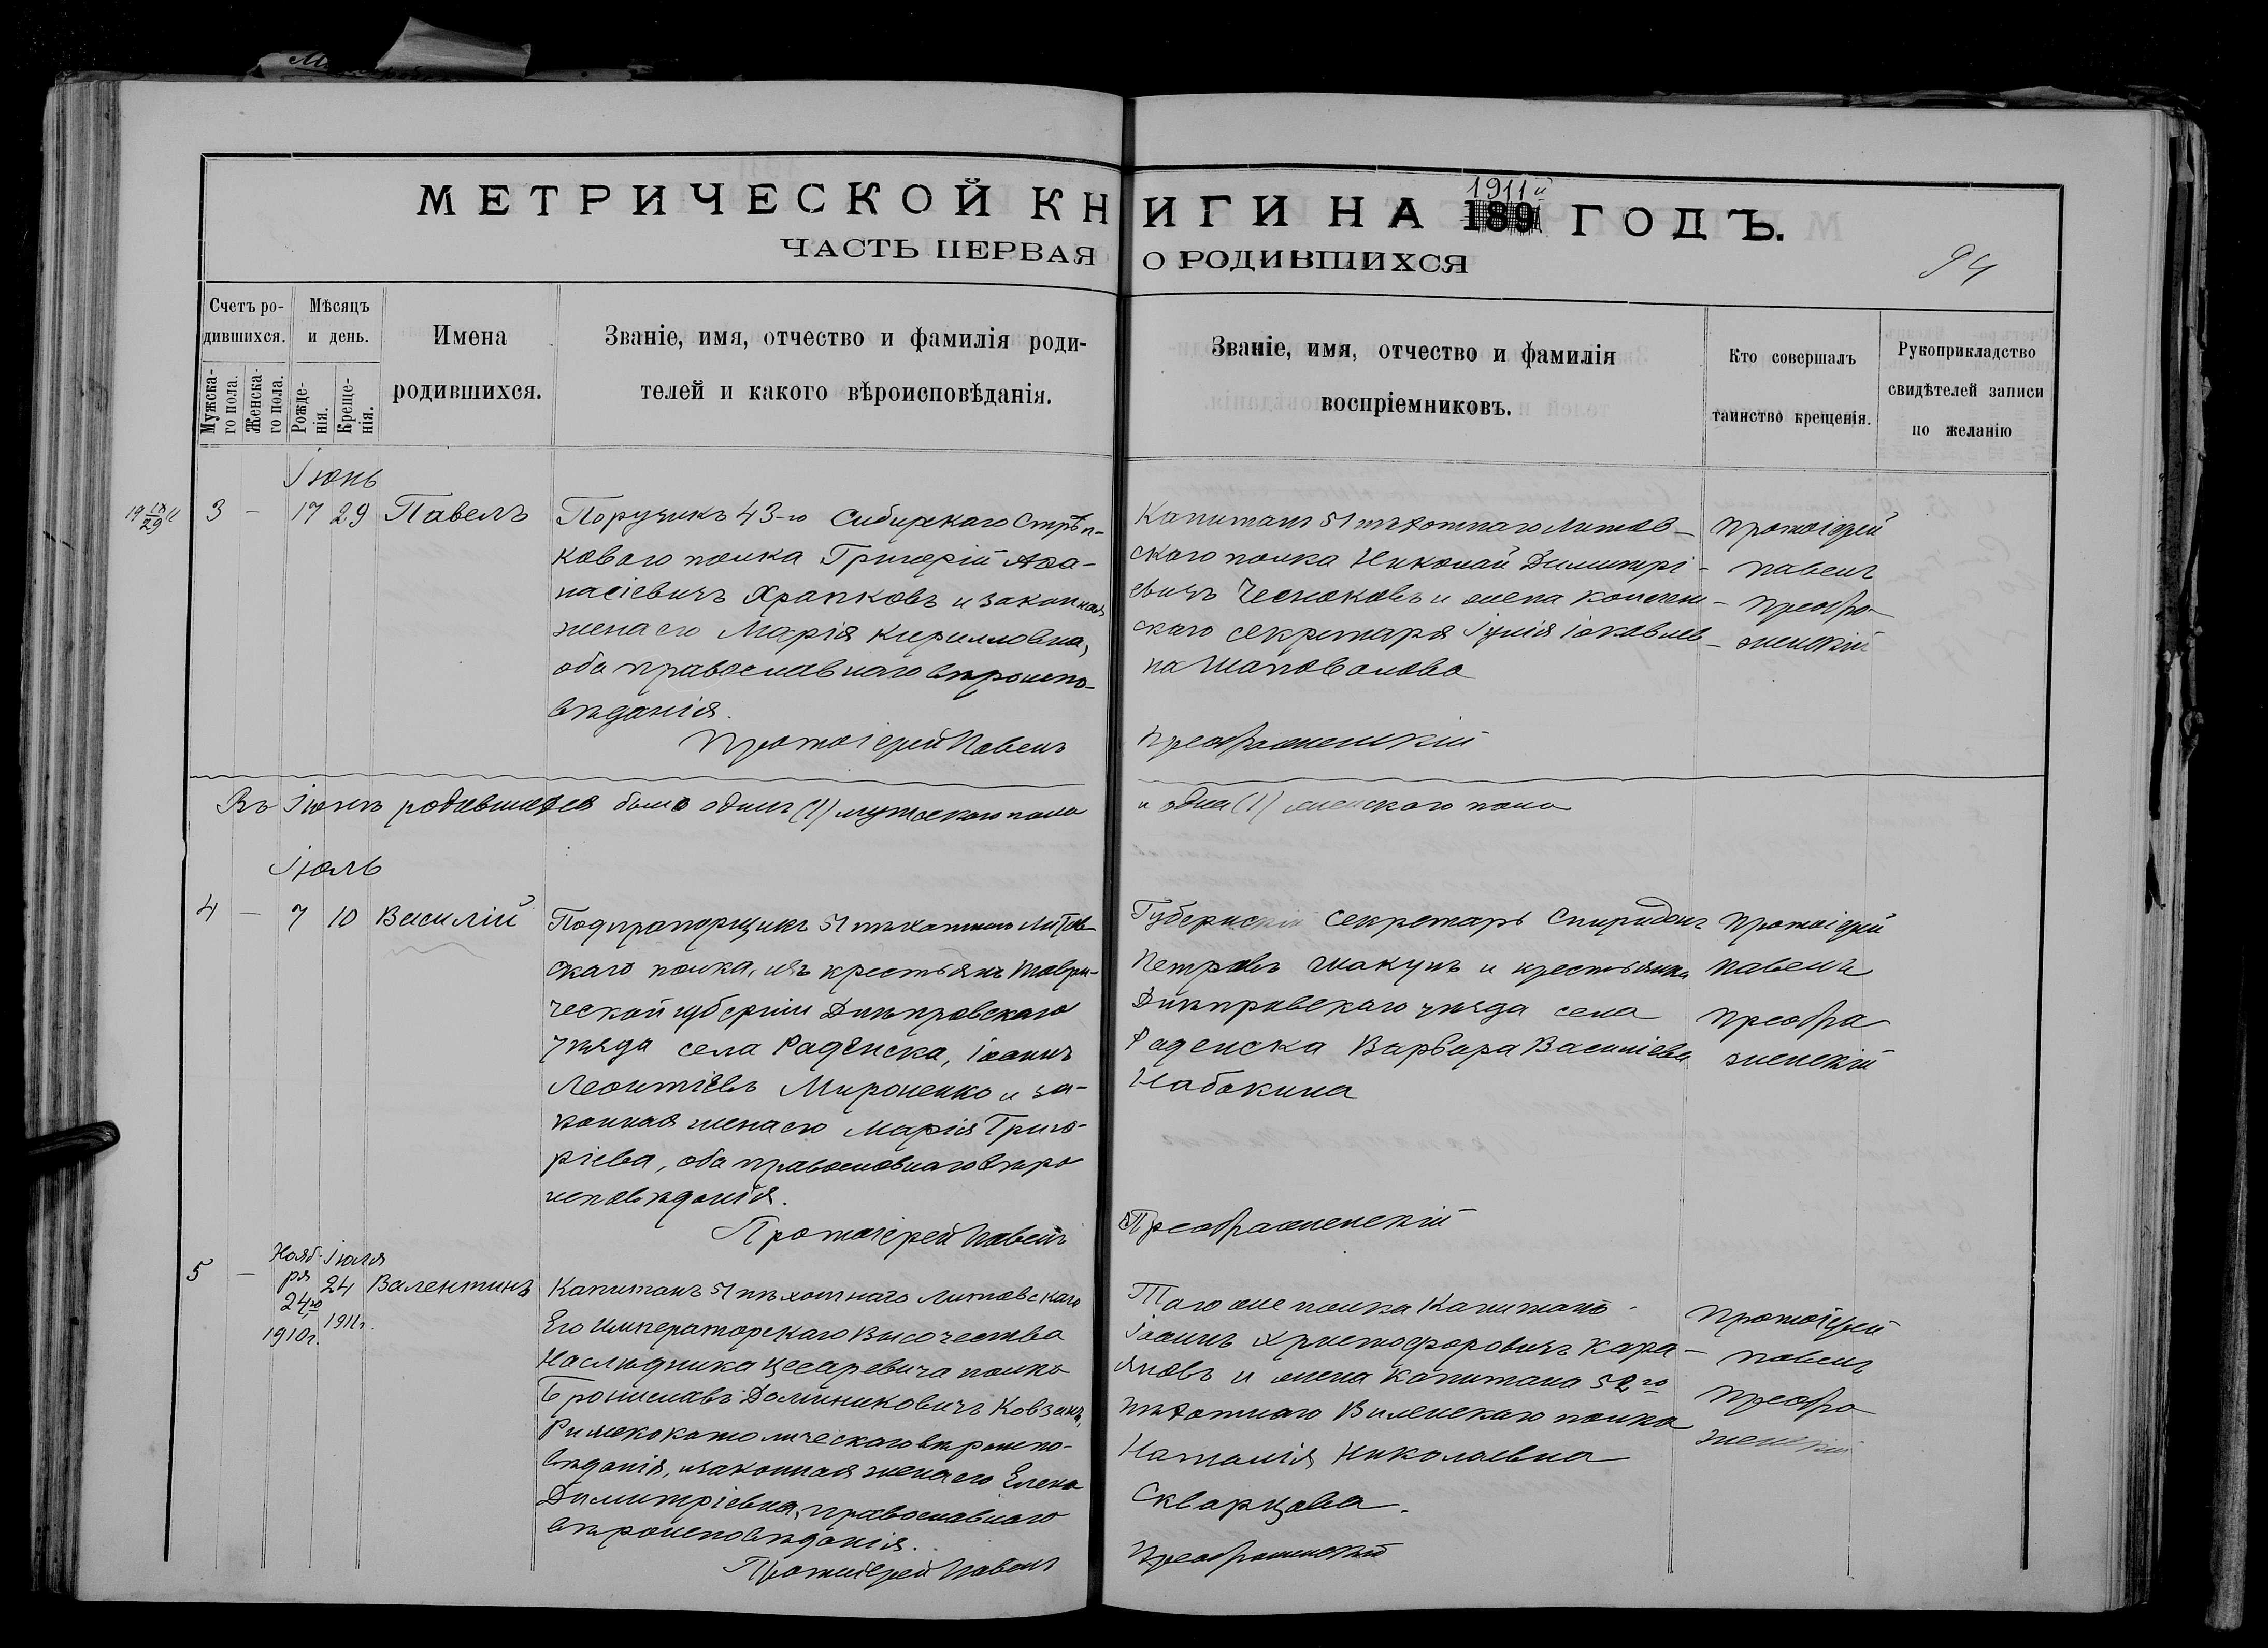 МЕТРИЧЕСКОЙ КНИГИ НА 1911й ГОДЪ.
189
ЧАСТЬ ПЕРВАЯ О РОДИВШИХСЯ
94
Счетъ ро-
дившихся.
Мужска-
го пола.
Женска-
го пола.
Мѣсяцъ
и день.
Рожде-
нія.
Креще-
нія.
Имена
родившихся.
Званіе, имя, отчество и фамилія роди-
телей и какого вѣроисповѣданія.
Званіе, имя, отчество и фамилія
воспріемниковъ.
Кто совершалъ
таинство крещенія.
Рукоприкладство
свидѣтелей записи
по желанію
Іюнь
3 – 17 29 Павелъ
Поручикъ 43-го Сибирскаго Стрѣл-
коваго полка Григорій Аѳа-
насіевичъ Храпковъ и законная
жена его Марія Кирилловна,
оба православнаго вѣроиспо-
вѣданія.
Протоіерей Павелъ
Капитанъ 51 пѣхотнаго Литов-
скаго полка Николай Димитрі-
евичъ Чесноковъ и жена коллеж-
скаго секретаря Іулія Іаковлев-
на Шаповалова
Преображенскій
Протоіерей
Павелъ
Преобра-
женскій
Въ Іюнѣ родившихся было одинъ (1) мужскаго пола
и одна (1) женскаго пола
Іюль
4 – 7 10 Василій
Подпрапорщикъ 51 пѣхотнаго Литов-
скаго полка, изъ крестьянъ Таври-
ческой губерніи Днѣпровскаго
уѣзда села Раденска, Іоаннъ
Леонтіевъ Мироненко и за-
конная жена его Марія Григо-
ріева, оба православнаго вѣро
исповѣданія.
Протоіерей Павелъ
Губернскій Секретарь Спиридонъ
Петровъ Шакунъ и крестьянка
Днѣпровскаго уѣзда села
Раденска Варвара Василіева
Набокина
Преображенскій
Протоіерей
Павелъ
Преобра
женскій
5 –
Нояб-
ря
24го
1910г.
Іюля
24
1911г.
Валентинъ
Капитанъ 51 пѣхотнаго Литовскаго
Его Императорскаго Высочества
Наслѣдника Цесаревича полка
Брониславъ Доминиковичъ Ковзанъ,
Римскокатолическаго вѣроиспо-
вѣданія, и законная жена его Елена
Димитріевна, православнаго
вѣроисповѣданія.
Протоіерей Павелъ
Того же полка Капитанъ
Іоаннъ Христофоровичъ Кара-
яновъ и жена Капитана 52го
пѣхотнаго Виленскаго полка
Наталія Николаевна
Скварцова.
Преображенскій
Протоіерей
Павелъ
Преобра
женскій